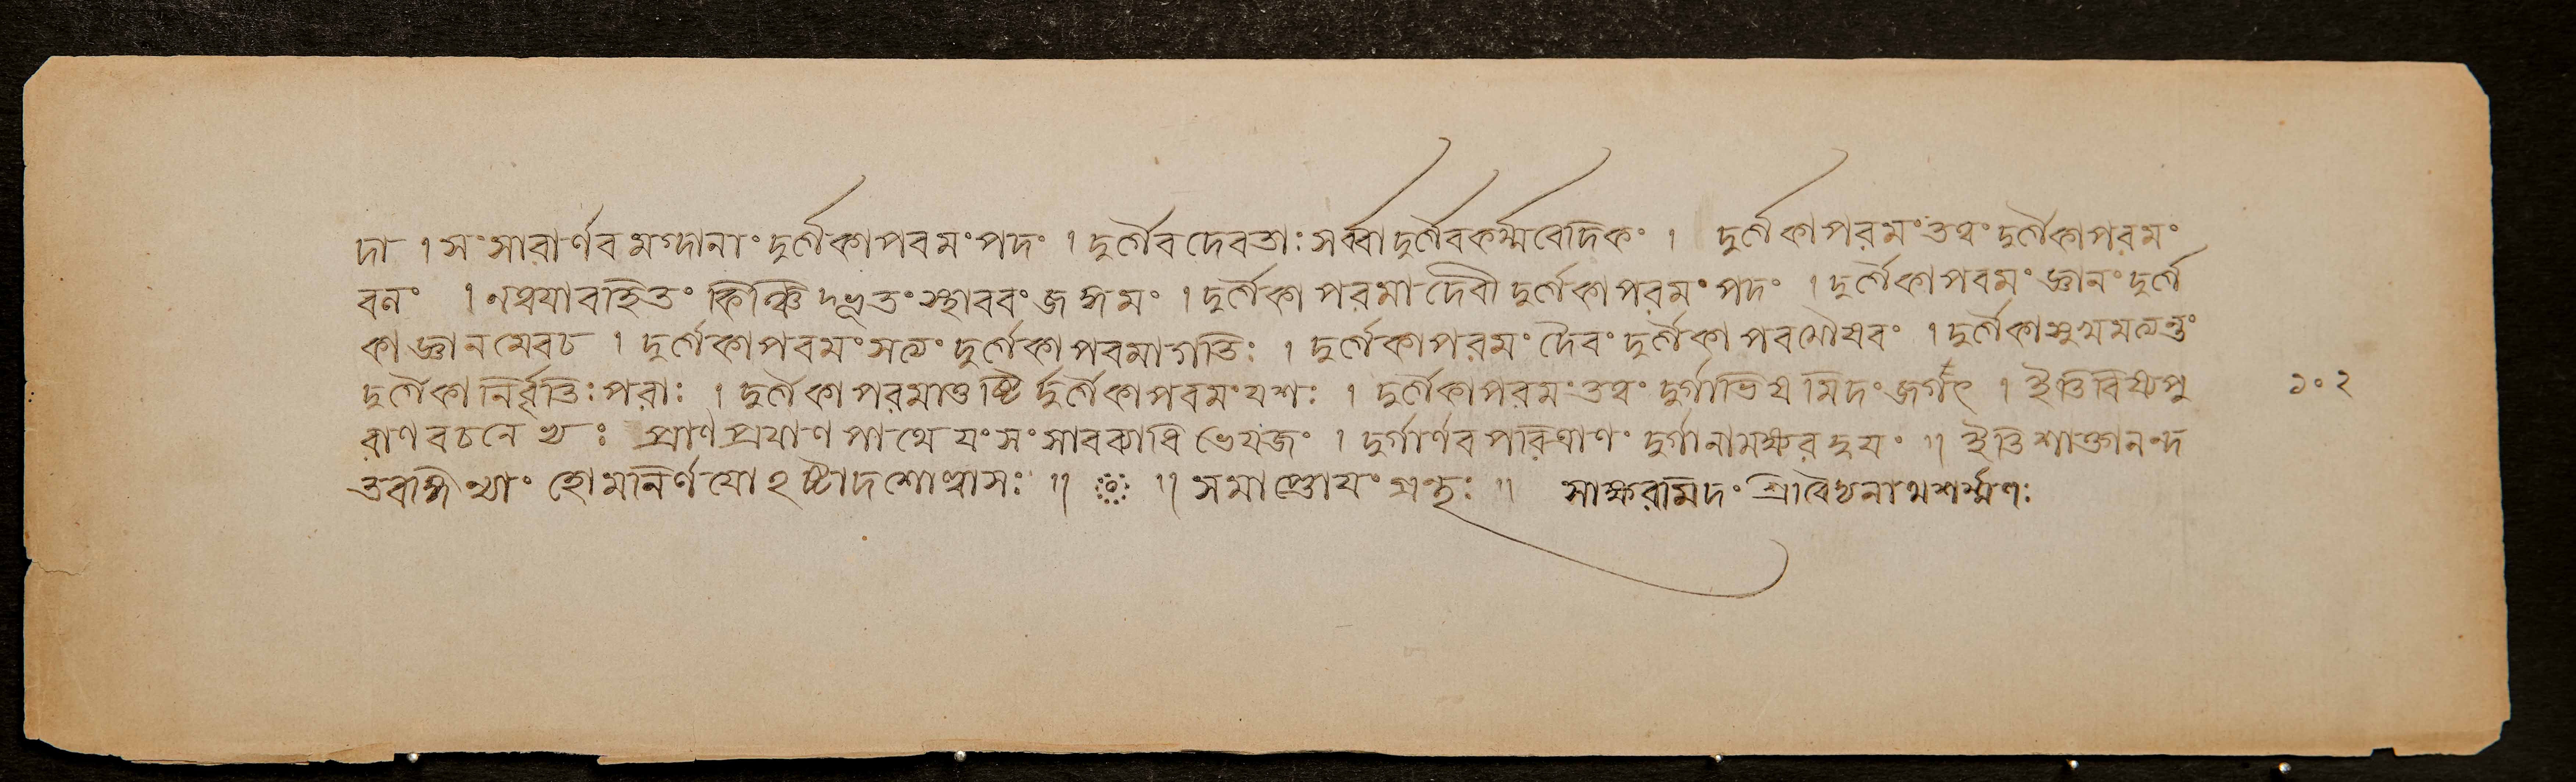 দা । সংসারার্ণবমগ্নানাং দুর্গৈকা পরমং পদং । দুর্গৈব দেবতাঃ সর্ব্বা দুর্গৈব কর্ম্ম বৈদিকং । দুর্গৈকা পরমং তত্ত্বং দুর্গৈকা পরমং
বনং । নত্বয়া রহিতং কিঞ্চিদ্ভূতং স্থাবরং জঙ্গমং । দুর্গৈকা পরমা দেবী দুর্গৈকা পরমং পদং । দুর্গৈকা পরমং জ্ঞানং দুর্গৈ
কা জ্ঞানমেবচ । দুর্গৈকা পরমং সত্যং দুর্গৈকা পরমাগতিঃ । দুর্গৈকা পরমং দৈবং দুর্গৈকা পরমৌষধং । দুর্গৈকা সুখমত্যন্তং
দুর্গৈকা নির্বৃতিঃ পরাঃ । দুর্গৈকা পরমাতুষ্টি র্দুর্গৈকা পরমং যশঃ । দুর্গৈকা পরমং তত্ত্বং দুর্গাভিধমিদং জগৎ । ইতি বিষ্ণুপু ১০২
রাণবচনেভ্যঃ প্রাণপ্রয়াণ পাথেয়ং সংসারব্যাধি ভেষজং । দুর্গার্ণব পরিত্রাণং দুর্গানামক্ষরদ্বয়ং ॥ ইতি শাক্তানন্দ
তরঙ্গিণ্যাং হোমনির্ণয়োঽষ্টাদশোল্লাসঃ ॥ ॥ সমাপ্তোয়ং গ্রন্থঃ ॥ সাক্ষরমিদং শ্রীবৈদ্যনাথশর্ম্মণঃ